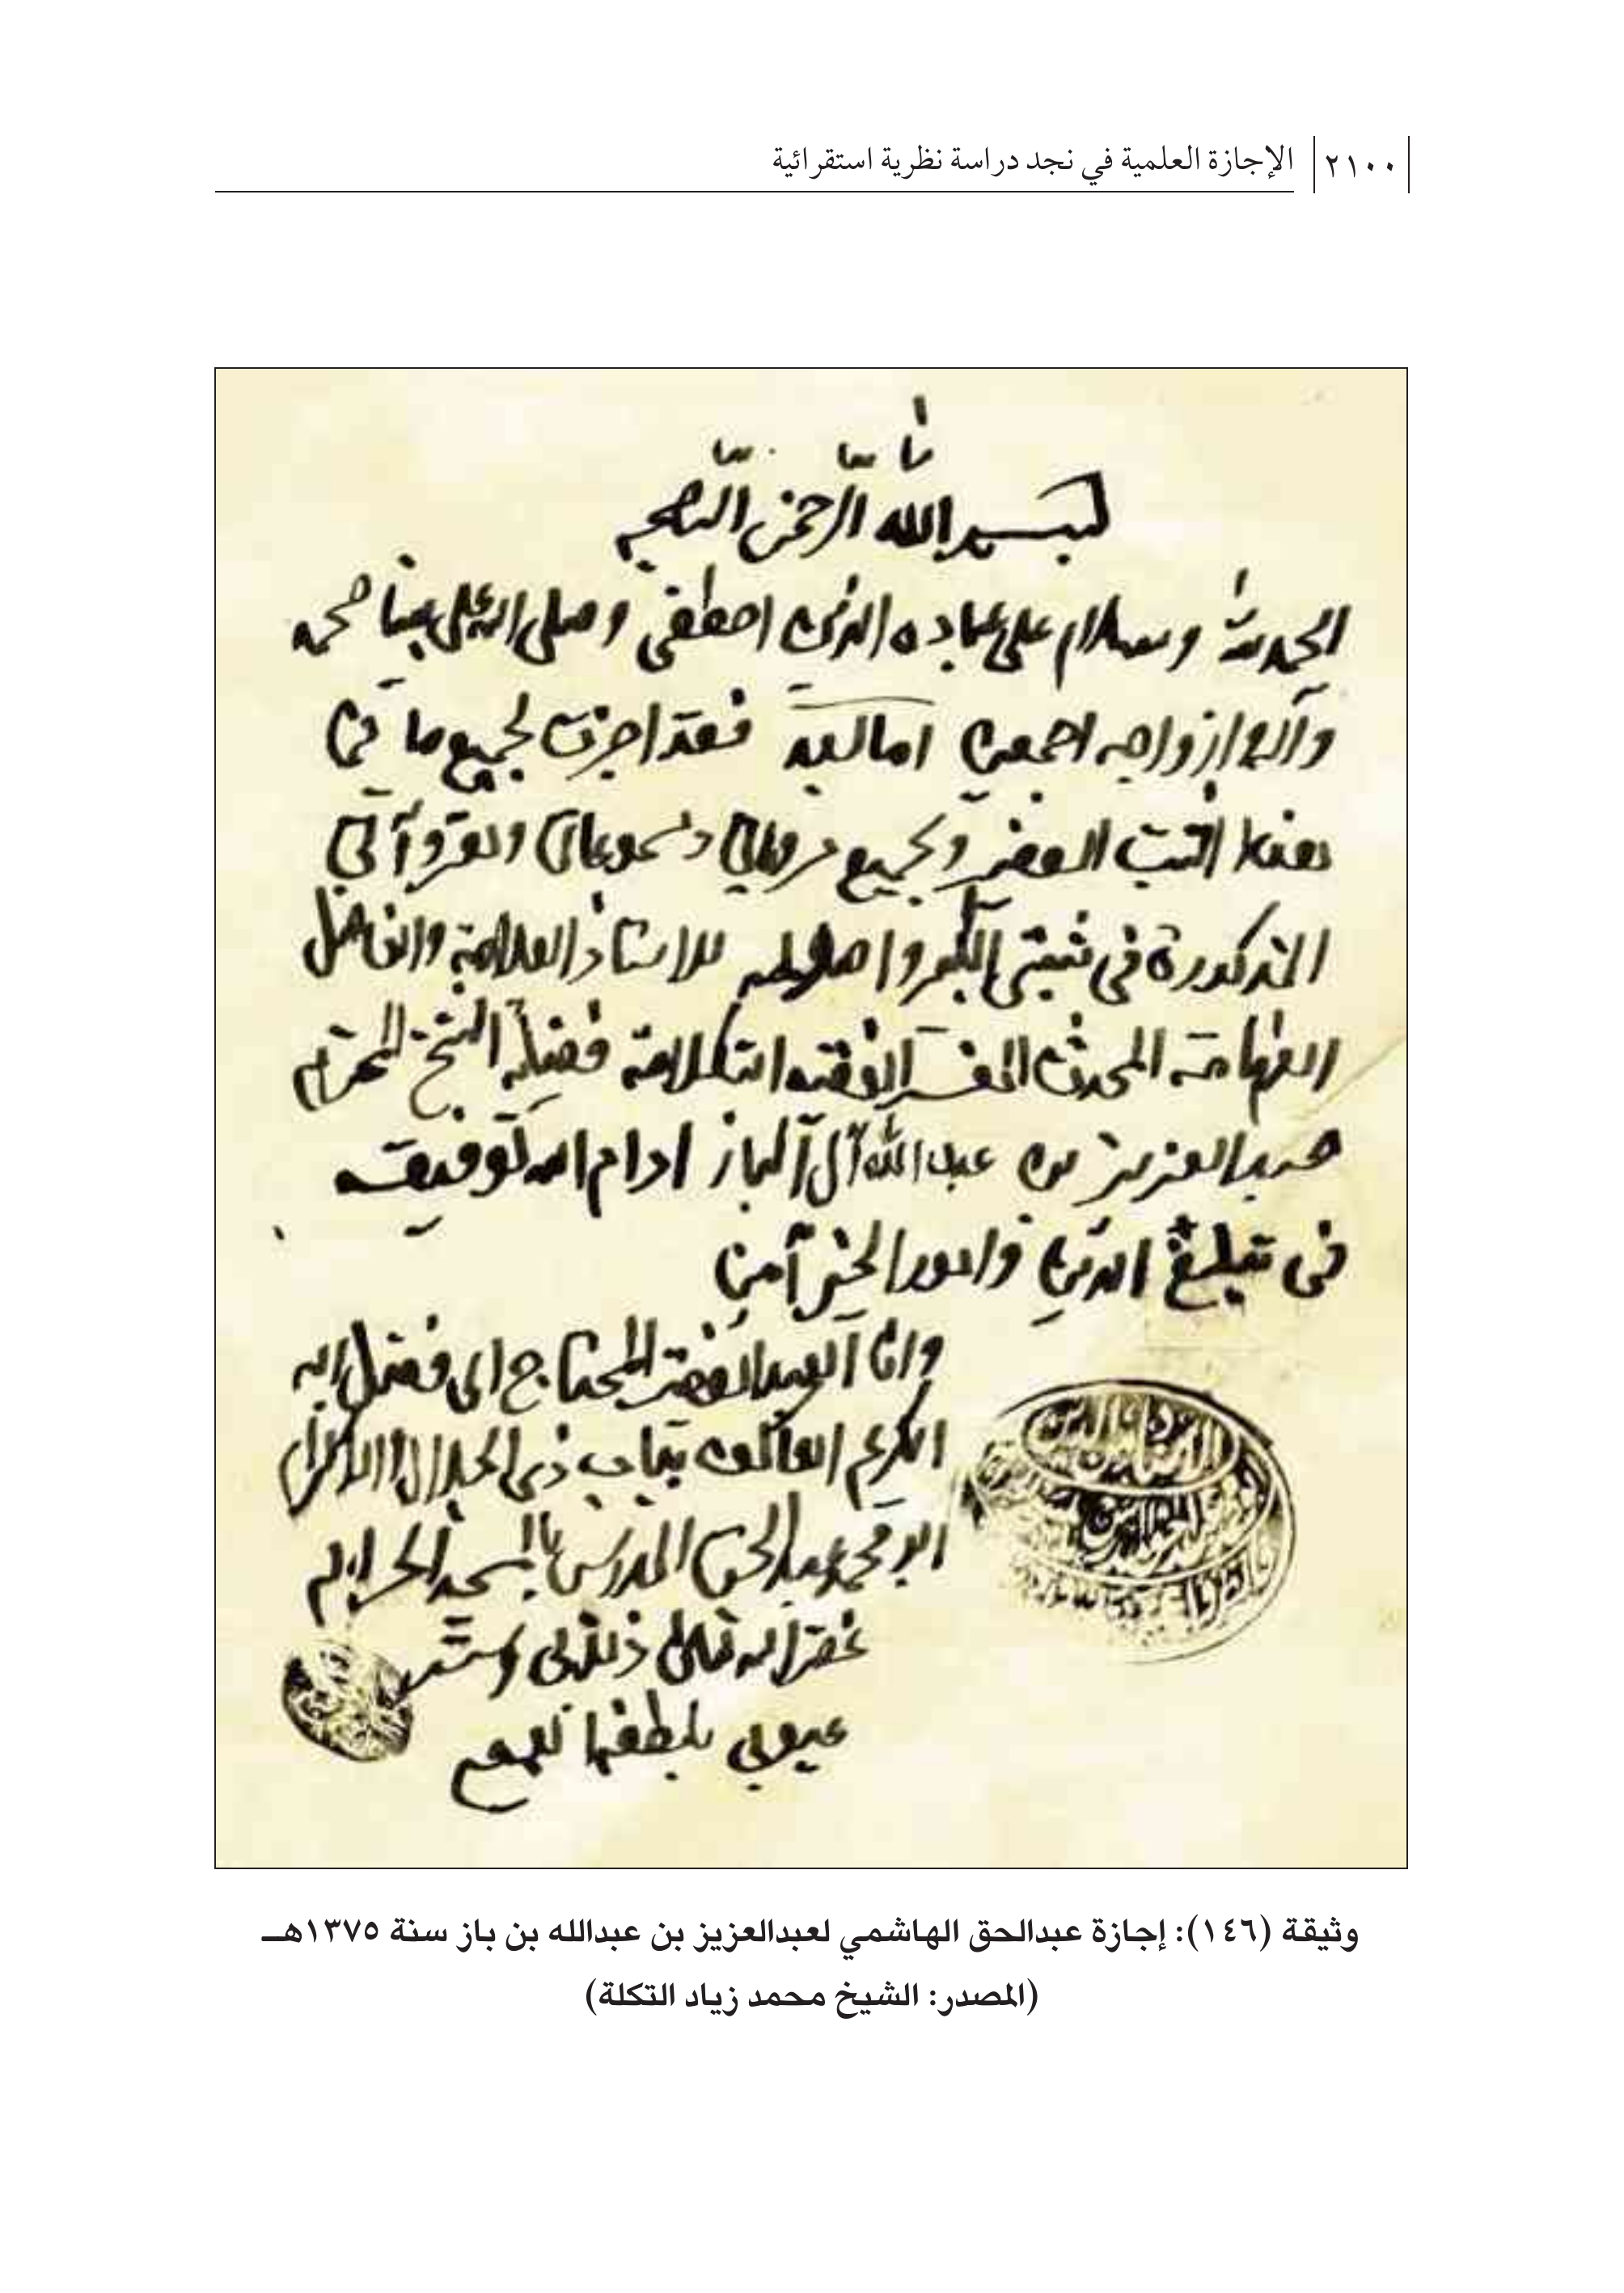 ٢١٠٠ الإجازة العلمية في نجد دراسة نظرية استقرائية
بسم الله الرحمن الرحيم
الحمد لله وسلام على عباده الذين اصطفى وصلى الله على نبينا محمد
وآله وازواجه اجمعين اما بعد فقد اجزت لجميع ما في
هذا الثبت الصغير وبجميع مروياتي ومسموعاتي ومقروآتي
المذكورة في ثبتي الكبير واصوله للاستاذ العلامة والفاضل
الفهامة المحدث المفسر الفقيه فضيلة الشيخ المحترم
عبد العزيز بن عبد الله آل الباز ادام الله توفيقه
في تبليغ الدين وامور الخير آمين
وانا العبد الفقير المحتاج الى فضل ربه
الكريم العاكف بباب ذي الجلال والاكرام
ابو محمد عبد الحق المدرس بالمسجد الحرام
غفر الله تعالى ذنوبي وستر
عيوبي بلطفه
وثيقة (١٤٦): إجازة عبدالحق الهاشمي لعبدالعزيز بن عبدالله بن باز سنة ١٣٧٥هـ
(المصدر: الشيخ محمد زياد التكلة)